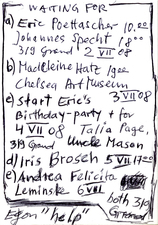 WAITING FOR
a) Eric Poettascher 10.00
Johannes Specht 18.00
319 Grand 2 VII 08
b) Madeleine Hatz Igee
Chelsea Art Museum
3 VII 08
c) start Eric's
Birthday-party + for
4 VII 08 Talia Page,
319 Grand Uncle Mason
d) Iris Brosch 5 VII 17.00
e) Andrea Felicita
Leminske 6 VII
both 319
Grand
Egon "help"